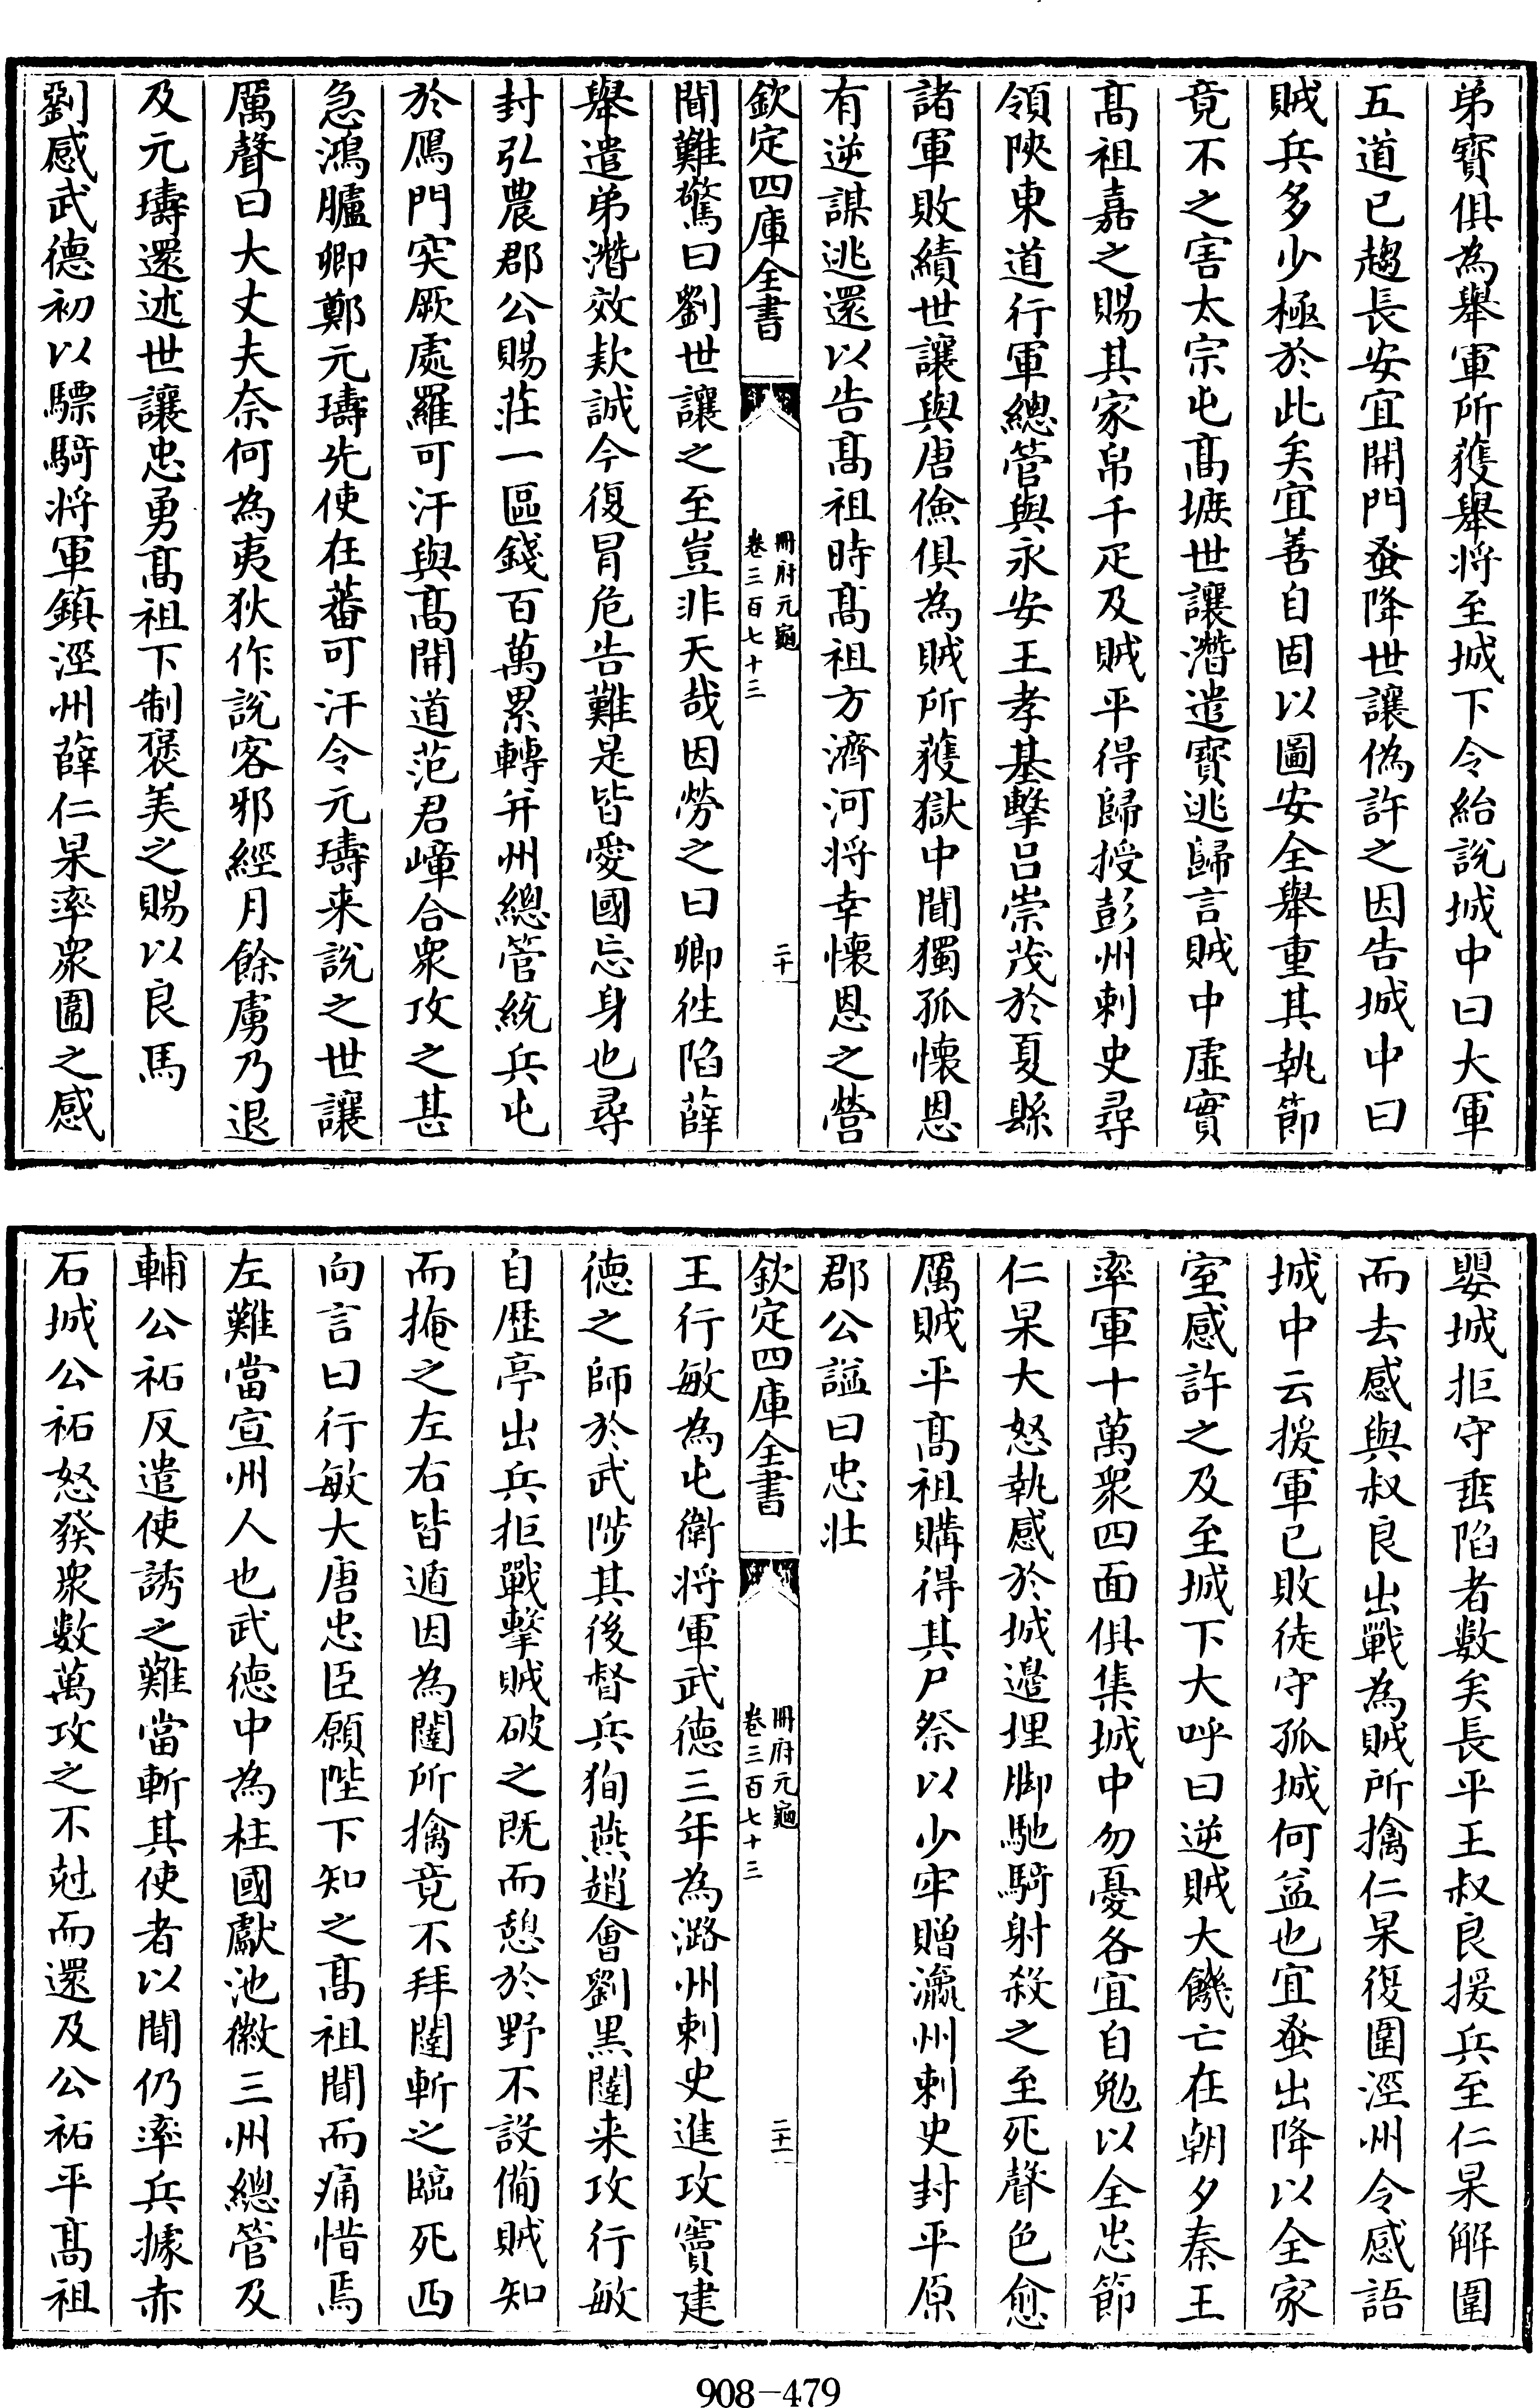 弟寳俱為舉軍所獲舉将至城下令紿說城中曰大軍
五道已趨長安宜開門蚤降世讓偽許之因告城中曰
賊兵多少極於此矣宜善自固以圖安全舉重其執節
竟不之害太宗屯髙墌世讓潛遣寳逃歸言賊中虛實
髙祖嘉之賜其家帛千疋及賊平得歸授彭州刺史尋
領陜東道行軍總管與永安王孝基擊吕崇茂於夏縣
諸軍敗績世讓與唐儉俱為賊所獲獄中聞獨孤懐恩
有逆謀逃還以告髙祖時髙祖方濟河将幸懐恩之營
欽定四庫全書
冊府元龜
卷三百七十三
二十
聞難驚曰劉世讓之至豈非天哉因勞之曰卿徃陷薛
舉遣弟潛效欵誠今復冒危告難是皆愛國忘身也尋
封弘農郡公賜莊一區錢百萬累轉并州總管統兵屯
於鴈門突厥處羅可汗與髙開道苑君嶂合衆攻之甚
急鴻臚卿鄭元璹先使在蕃可汗令元璹来說之世讓
厲聲曰大丈夫奈何為夷狄作說客邪經月餘虜乃退
及元璹還述世讓忠勇髙祖下制褒美之賜以良馬
劉感武德初以驃騎将軍鎮涇州薛仁杲率衆圍之感
嬰城拒守垂陷者數矣長平王叔良援兵至仁杲解圍
而去感與叔良出戰為賊所擒仁杲復圍涇州令感語
城中云援軍已敗徒守孤城何益也宜蚤出降以全家
室感許之及至城下大呼曰逆賊大饑亡在朝夕秦王
率軍十萬衆四面俱集城中勿憂各宜自勉以全忠節
仁杲大怒執感於城邉埋脚馳騎射殺之至死聲色愈
厲賊平髙祖購得其尸祭以少牢贈瀛州刺史封平原
郡公諡曰忠壮
欽定四庫全書
冊府元龜
卷三百七十三
二十一
王行敏為屯衛将軍武德三年為潞州刺史進攻竇建
德之師於武陟其後督兵狥燕趙會劉黑闥来攻行敏
自歴亭出兵拒戰擊賊破之既而憩於野不設備賊知
而掩之左右皆遁因為闥所擒竟不拜闥斬之臨死西
向言曰行敏大唐忠臣願陛下知之髙祖聞而痛惜焉
左難當宣州人也武德中為柱國獻池徽三州總管及
輔公祏反遣使誘之難當斬其使者以聞仍率兵據赤
石城公祏怒發衆數萬攻之不尅而還及公祏平髙祖
908-479